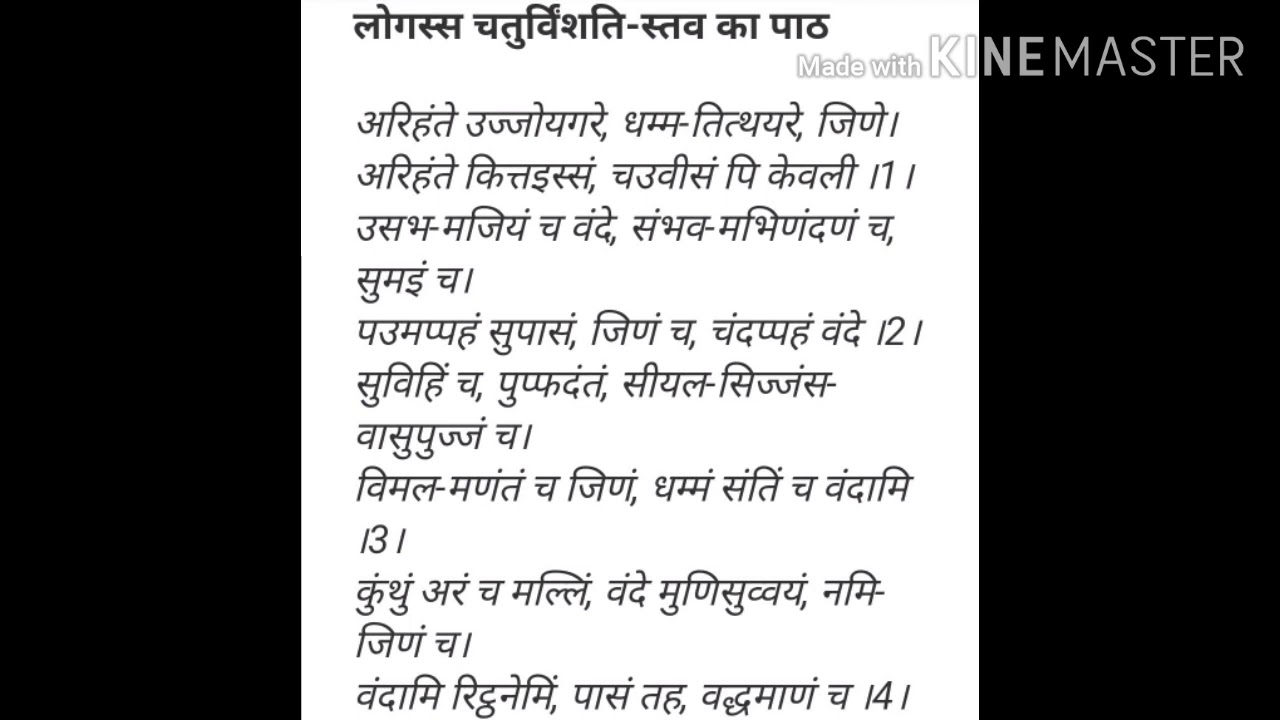 लोगस्स चतुर्विंशति-स्तव का पाठ
Made with KINEMASTER
अरिहंते उज्जोयगरे, धम्म-तित्थयरे, जिणे।
अरिहंते कित्तइस्सं, चउवीसं पि केवली ।1।
उसभ-मजियं च वंदे, संभव-मभिणंदणं च,
सुमइं च।
पउमप्पहं सुपासं, जिणं च, चंदप्पहं वंदे ।2।
सुविहिं च, पुप्फदंतं, सीयल-सिज्जंस-
वासुपुज्जं च।
विमल-मणंतं च जिणं, धम्मं संतिं च वंदामि
।3।
कुंथुं अरं च मल्लिं, वंदे मुणिसुव्वयं, नमि-
जिणं च।
वंदामि रिट्ठनेमिं, पासं तह, वद्धमाणं च ।4।